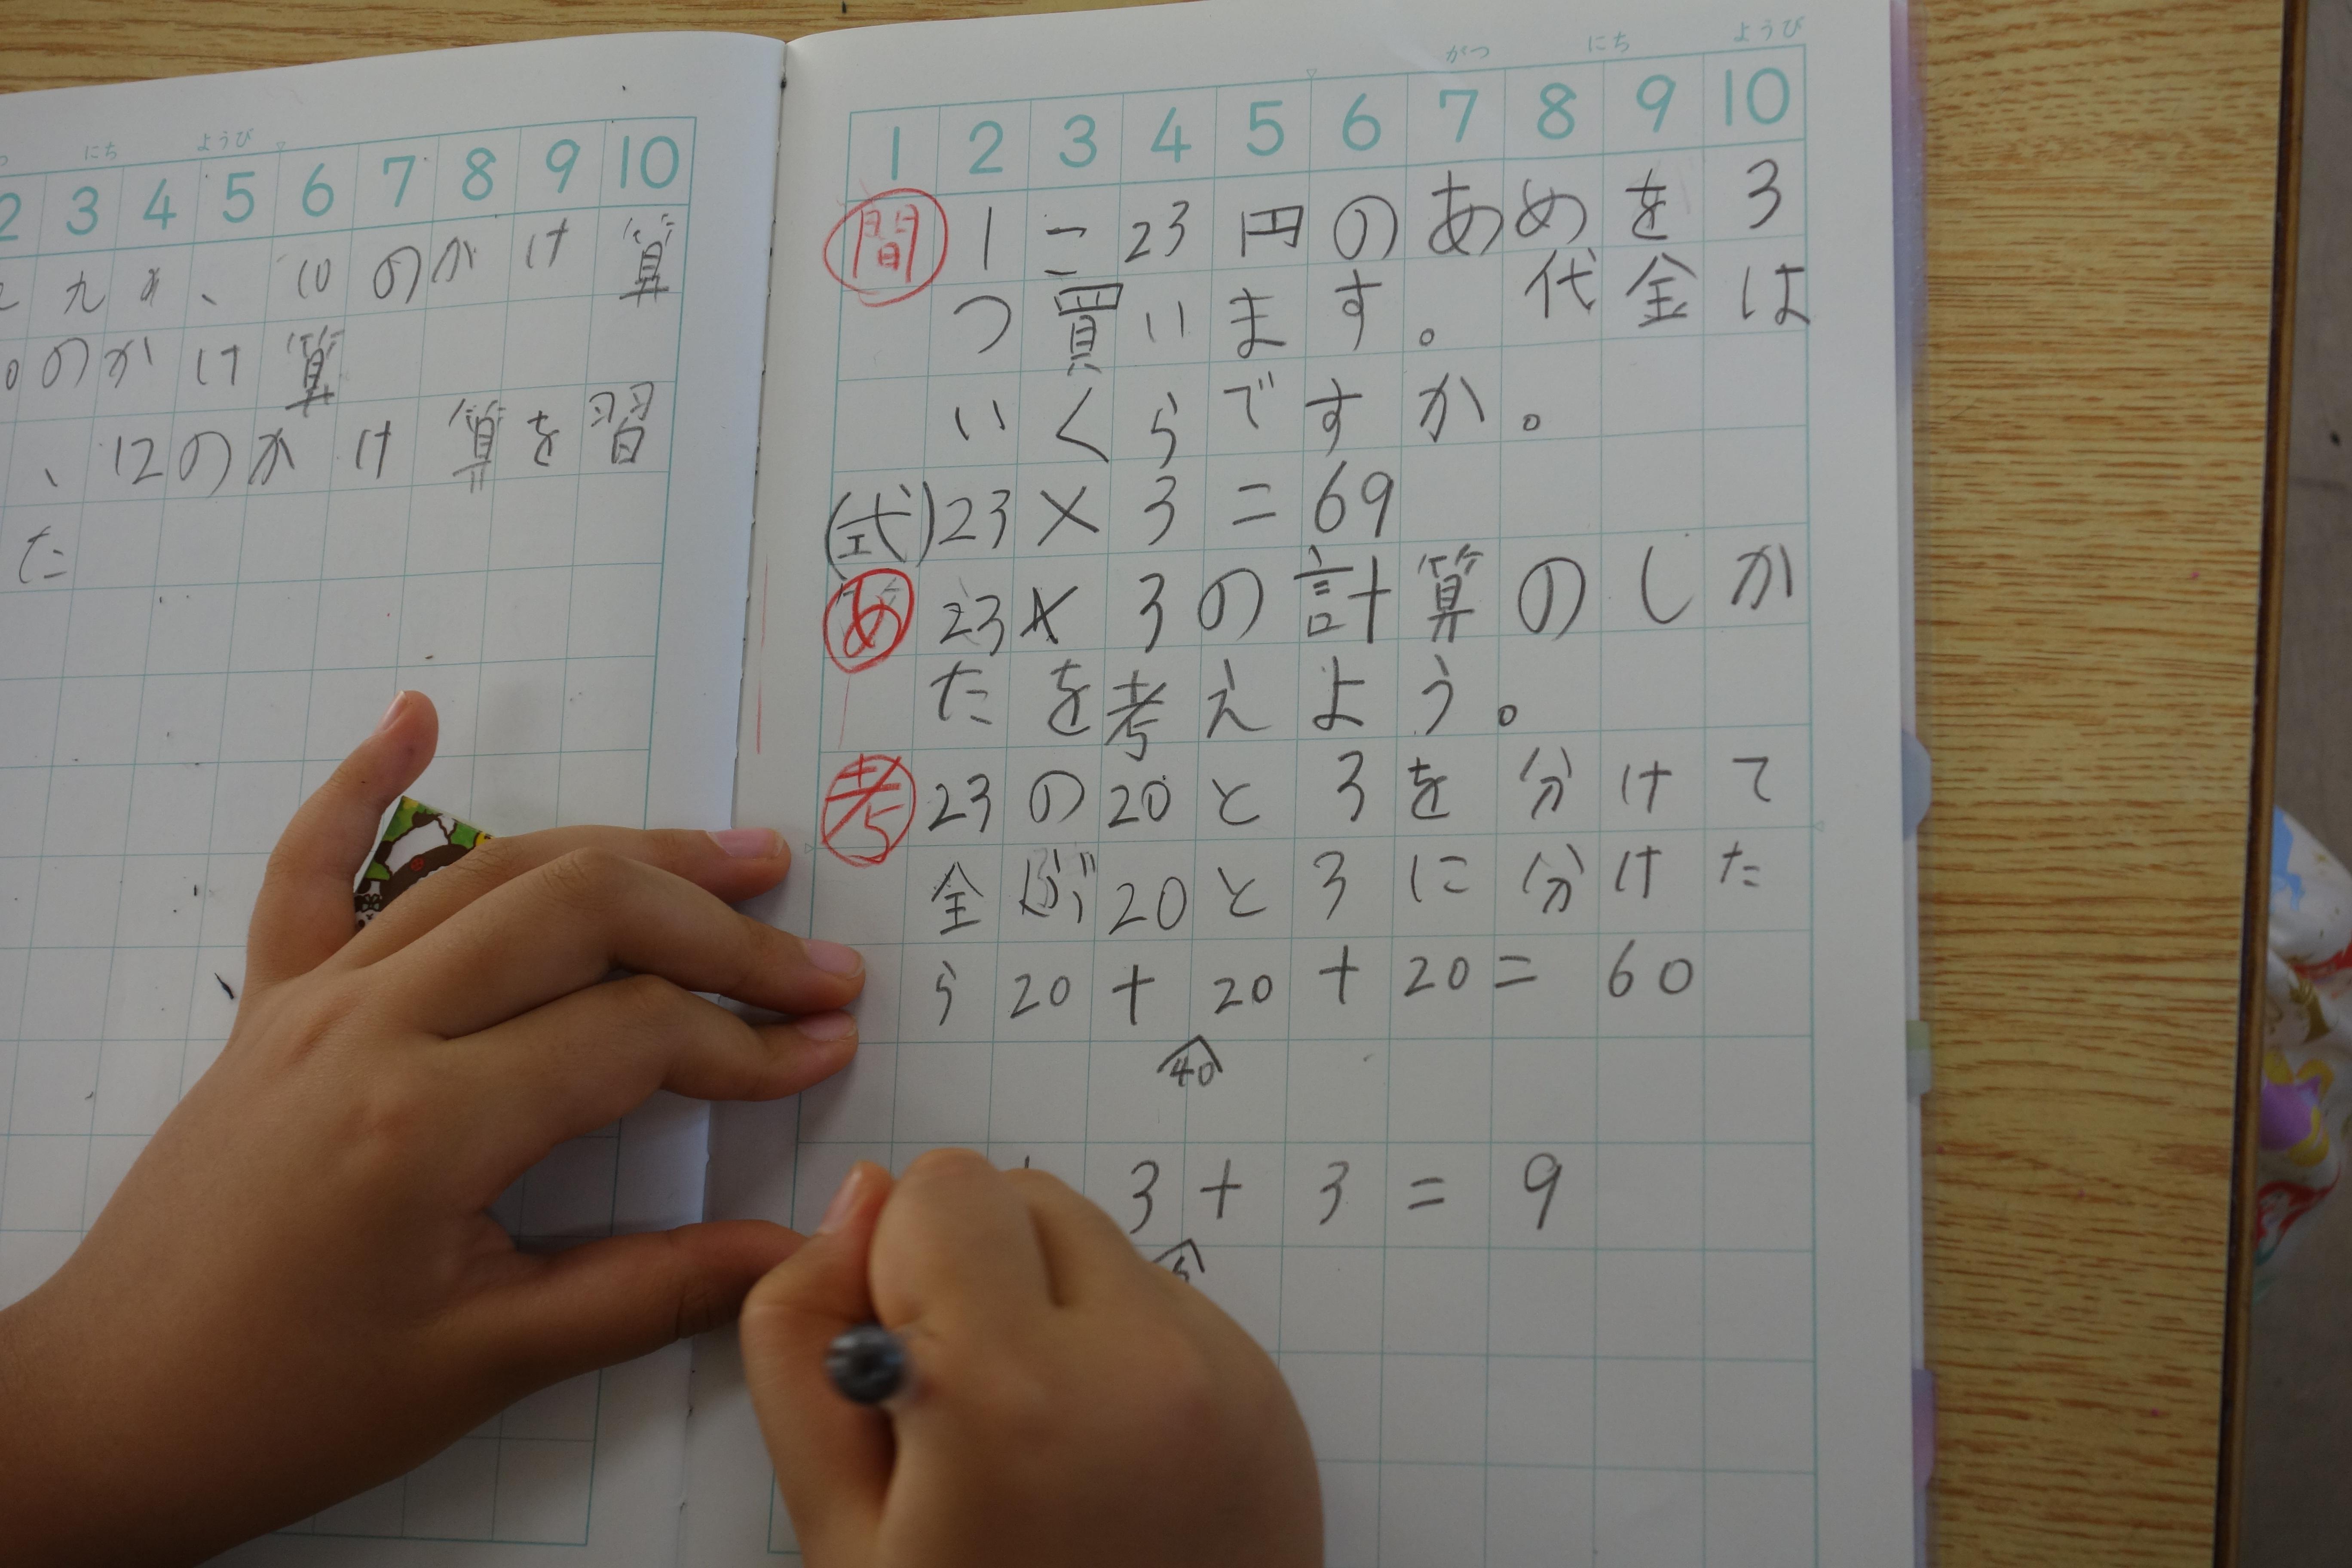 にち ようび
2 3 4 5 6 7 8 9 10
九九、10のがけ算
0のかけ算
、12のかけ算を習
た
がつ にち ようび
1 2 3 4 5 6 7 8 9 10
問 1こ23円のあめを3
つ買います。代金は
いくらですか。
(式)23×3=69
め 23×3の計算のしか
たを考えよう。
考 23の20と3を分けて
全ぶ20と3に分けた
ら20+20+20=60
40
3+3=9